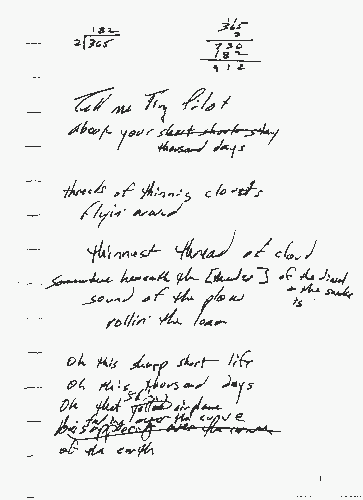 182
2)365
365
2
730
182
912
Tell me Tiny Pilot
about your short short stay
thousand days
threads of thinning clouds
flyin' around
thinnest thread of cloud
somewhere beneath the [thunder] of the diesel
+ the smoke
is
sound of the plow
rollin' the loam
Oh this sharp short life
Oh this thousand days
Oh that airplane
over the curve
over the curve
of the earth